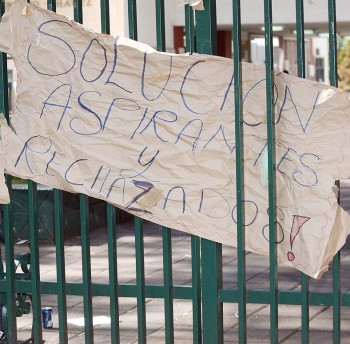 SOLUCION
ASPIRANTES
y
RECHAZADOS!